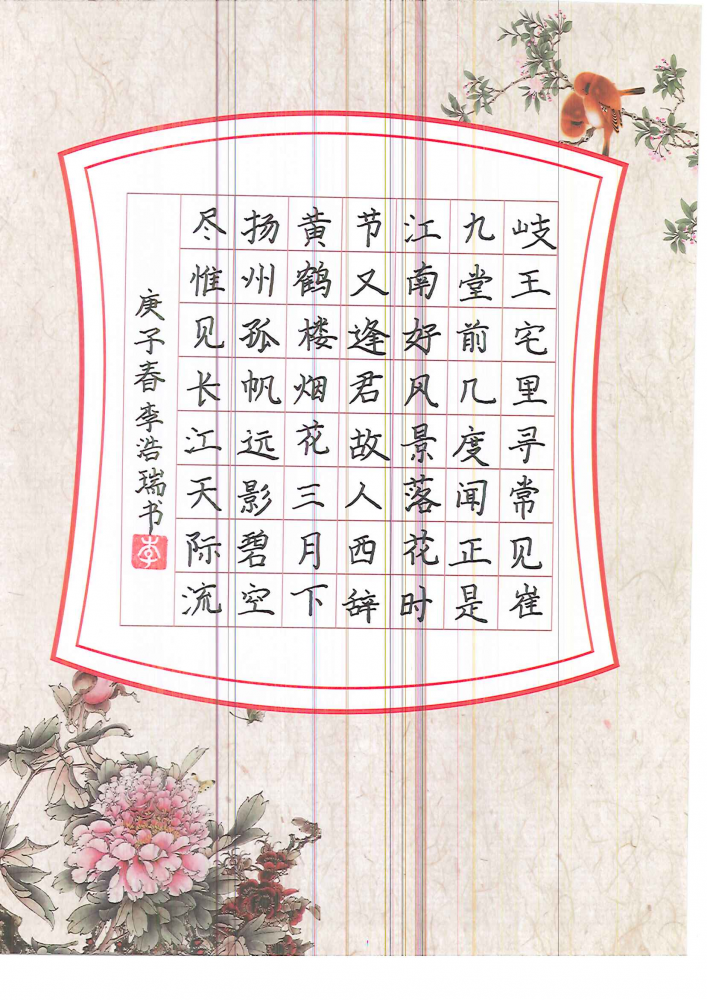 岐王宅里寻常见崔
九堂前几度闻正是
江南好风景落花时
节又逢君故人西辞
黄鹤楼烟花三月下
扬州孤帆远影碧空
尽惟见长江天际流
庚子春李浩瑞书
李